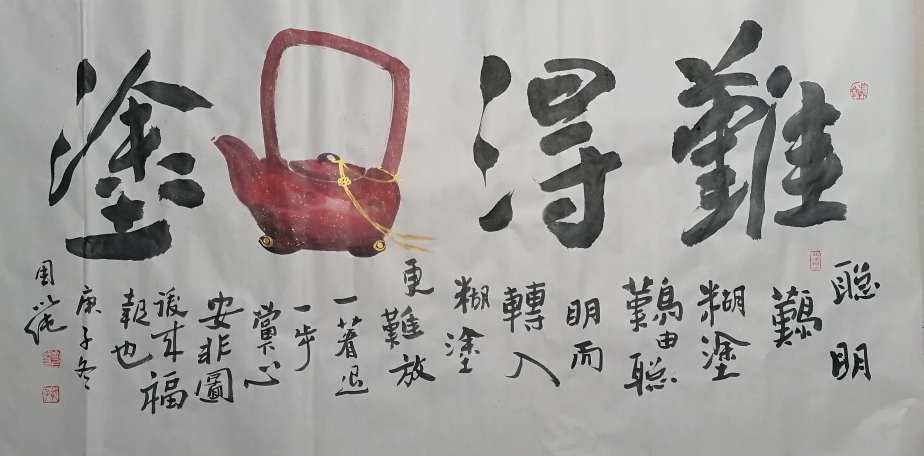 難得塗
聰明
難
糊塗
難由聰
明而
轉入
糊塗
更難放
一著退
一步
當心
安非圖
後來福
報也
庚子冬
周